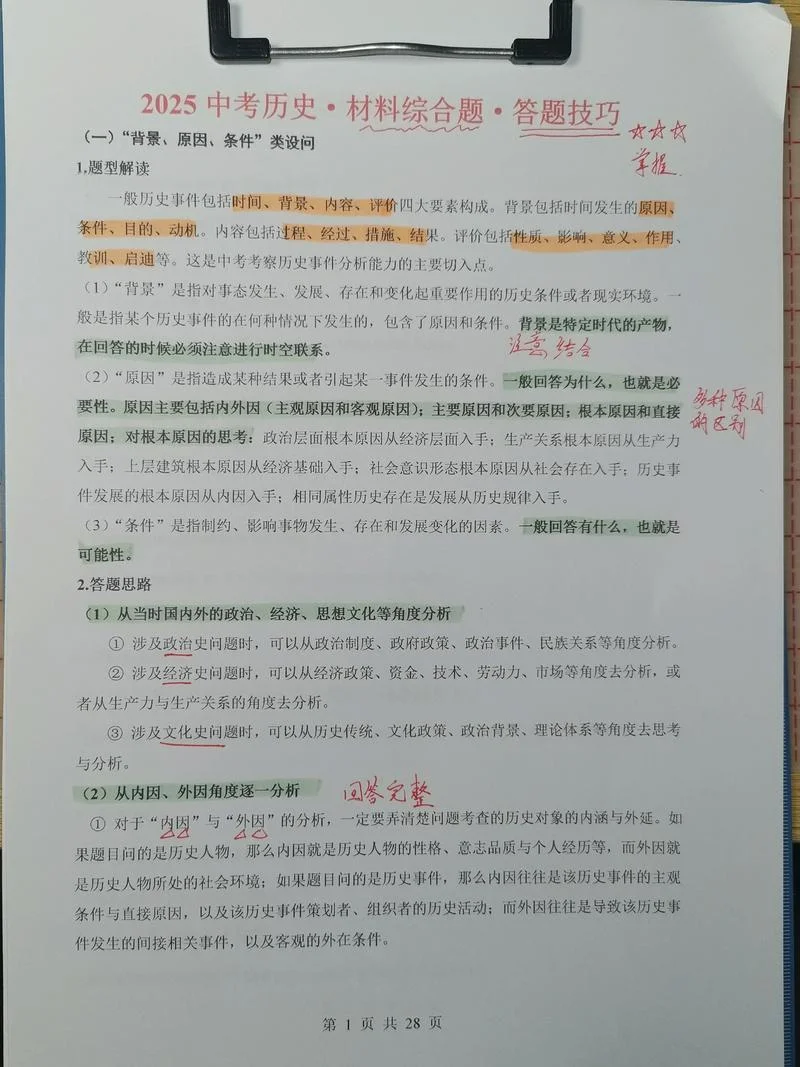 2025 中考历史·材料综合题·答题技巧
☆☆☆
掌握
（一）“背景、原因、条件”类设问
1.题型解读
一般历史事件包括时间、背景、内容、评价四大要素构成。背景包括时间发生的原因、
条件、目的、动机。内容包括过程、经过、措施、结果。评价包括性质、影响、意义、作用、
教训、启迪等。这是中考考察历史事件分析能力的主要切入点。
（1）“背景”是指对事态发生、发展、存在和变化起重要作用的历史条件或者现实环境。一
般是指某个历史事件的在何种情况下发生的，包含了原因和条件。背景是特定时代的产物，
在回答的时候必须注意进行时空联系。
注意 结合
（2）“原因”是指造成某种结果或者引起某一事件发生的条件。一般回答为什么，也就是必
要性。原因主要包括内外因（主观原因和客观原因）；主要原因和次要原因；根本原因和直接
原因；对根本原因的思考：政治层面根本原因从经济层面入手；生产关系根本原因从生产力
入手；上层建筑根本原因从经济基础入手；社会意识形态根本原因从社会存在入手；历史事
件发展的根本原因从内因入手；相同属性历史存在是发展从历史规律入手。
多种原因
的区别
（3）“条件”是指制约、影响事物发生、存在和发展变化的因素。一般回答有什么，也就是
可能性。
2.答题思路
（1）从当时国内外的政治、经济、思想文化等角度分析
① 涉及政治史问题时，可以从政治制度、政府政策、政治事件、民族关系等角度分析。
② 涉及经济史问题时，可以从经济政策、资金、技术、劳动力、市场等角度去分析，或
者从生产力与生产关系的角度去分析。
③ 涉及文化史问题时，可以从历史传统、文化政策、政治背景、理论体系等角度去思考
与分析。
（2）从内因、外因角度逐一分析
回答完整
① 对于“内因”与“外因”的分析，一定要弄清楚问题考查的历史对象的内涵与外延。如
果题目问的是历史人物，那么内因就是历史人物的性格、意志品质与个人经历等，而外因就
是历史人物所处的社会环境；如果题目问的是历史事件，那么内因往往是该历史事件的主观
条件与直接原因，以及该历史事件策划者、组织者的历史活动；而外因往往是导致该历史事
件发生的间接相关事件，以及客观的外在条件。
第 1 页 共 28 页